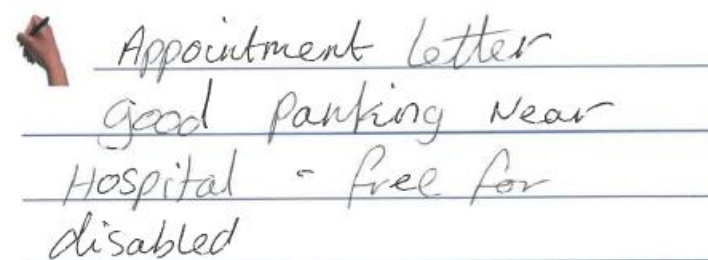 Appointment letter
good parking Near
Hospital - free for
disabled